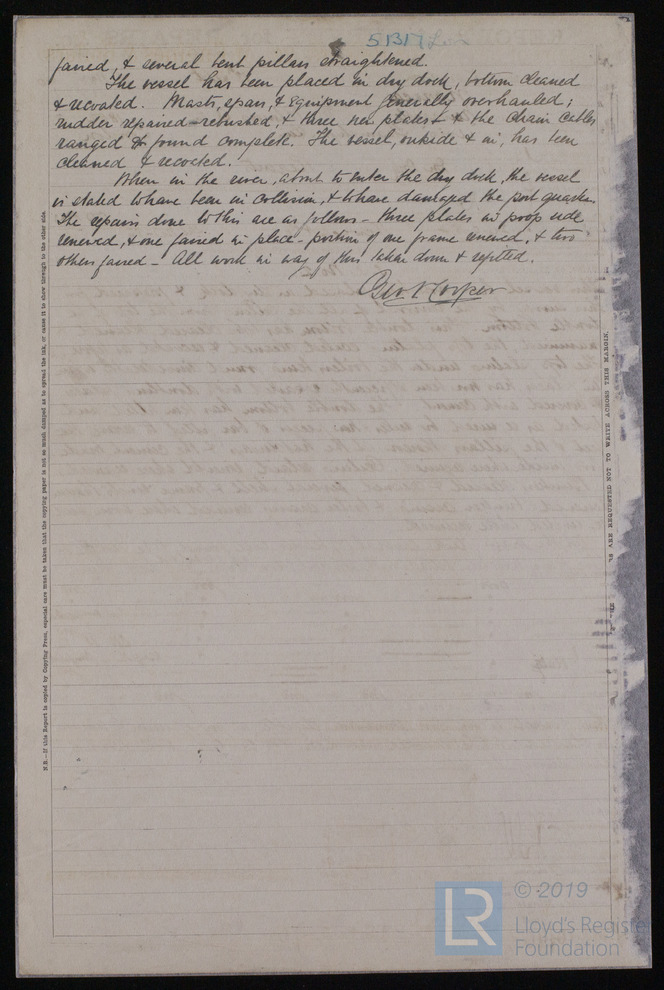 faired, & several bent pillars straightened.
The vessel has been placed in dry dock, bottom cleaned
& recoated. Masts, spars, & Equipment generally overhauled;
rudder repaired - rebushed, & three new plates & the chain cables
ranged & found complete. The vessel, outside & in, has been
cleaned & recoated.
When in the river, about to enter the dry dock, the vessel
is stated to have been in collision, & to have damaged the port quarter.
The repairs done to this are as follows - three plates in poop side
renewed, & one faired in place - portion of one frame renewed, & two
others faired - All work in way of this taken down & refitted.
Geo Cooper
N.B.—If this Report is copied by Copying Press, especial care must be taken that the copying paper is not so much damped as to spread the ink, or cause it to show through to the other side.
ARE REQUESTED NOT TO WRITE ACROSS THIS MARGIN.
LR
© 2019
Lloyd's Registe
Foundation